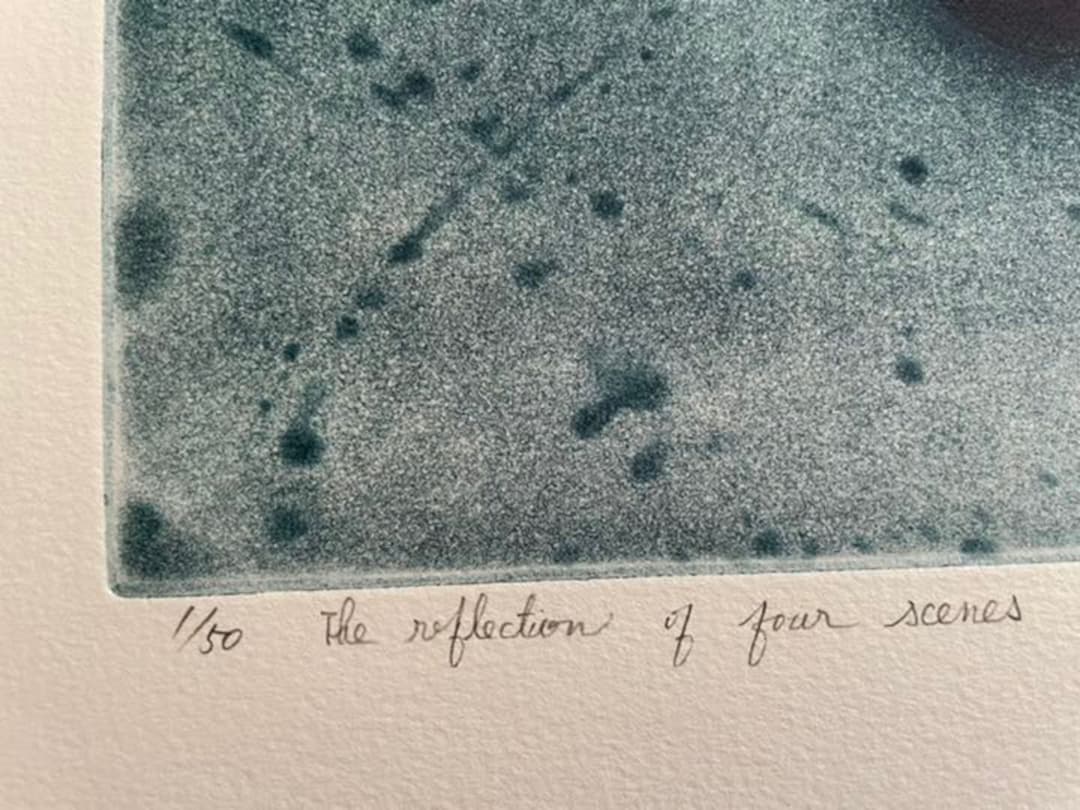 1/50 The reflection of four scenes